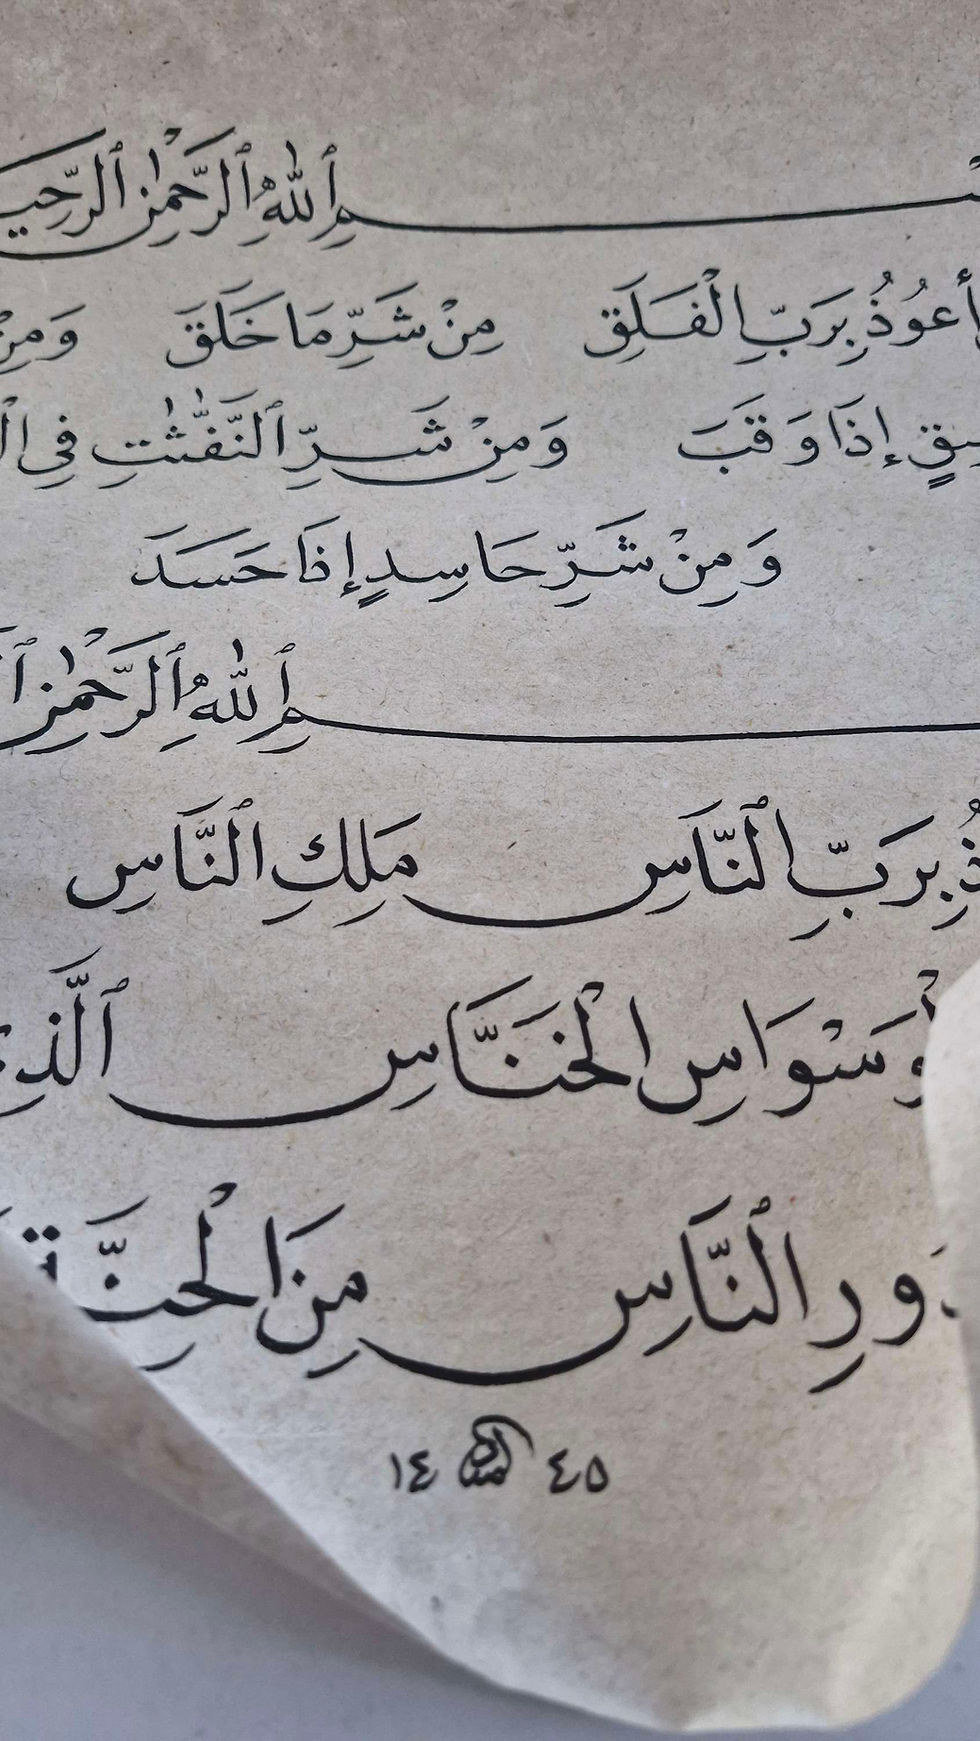 ٱللّٰهِ ٱلرَّحْمٰنِ ٱلرَّحِيـ
أَعُوذُ بِرَبِّ الْفَلَقِ مِنْ شَرِّ مَا خَلَقَ وَمِنْ
ـسِقٍ إِذَا وَقَبَ وَمِنْ شَرِّ ٱلنَّفّٰثٰتِ فِي الْـ
وَمِنْ شَرِّ حَاسِدٍ إِذَا حَسَدَ
ٱللّٰهِ ٱلرَّحْمٰنِ
ـذُ بِرَبِّ ٱلنَّاسِ مَلِكِ ٱلنَّاسِ
ـوَسْوَاسِ الْخَنَّاسِ ٱلَّذِي
ـدُورِ ٱلنَّاسِ مِنَ الْجِنَّةِ
١٤ ٤٥